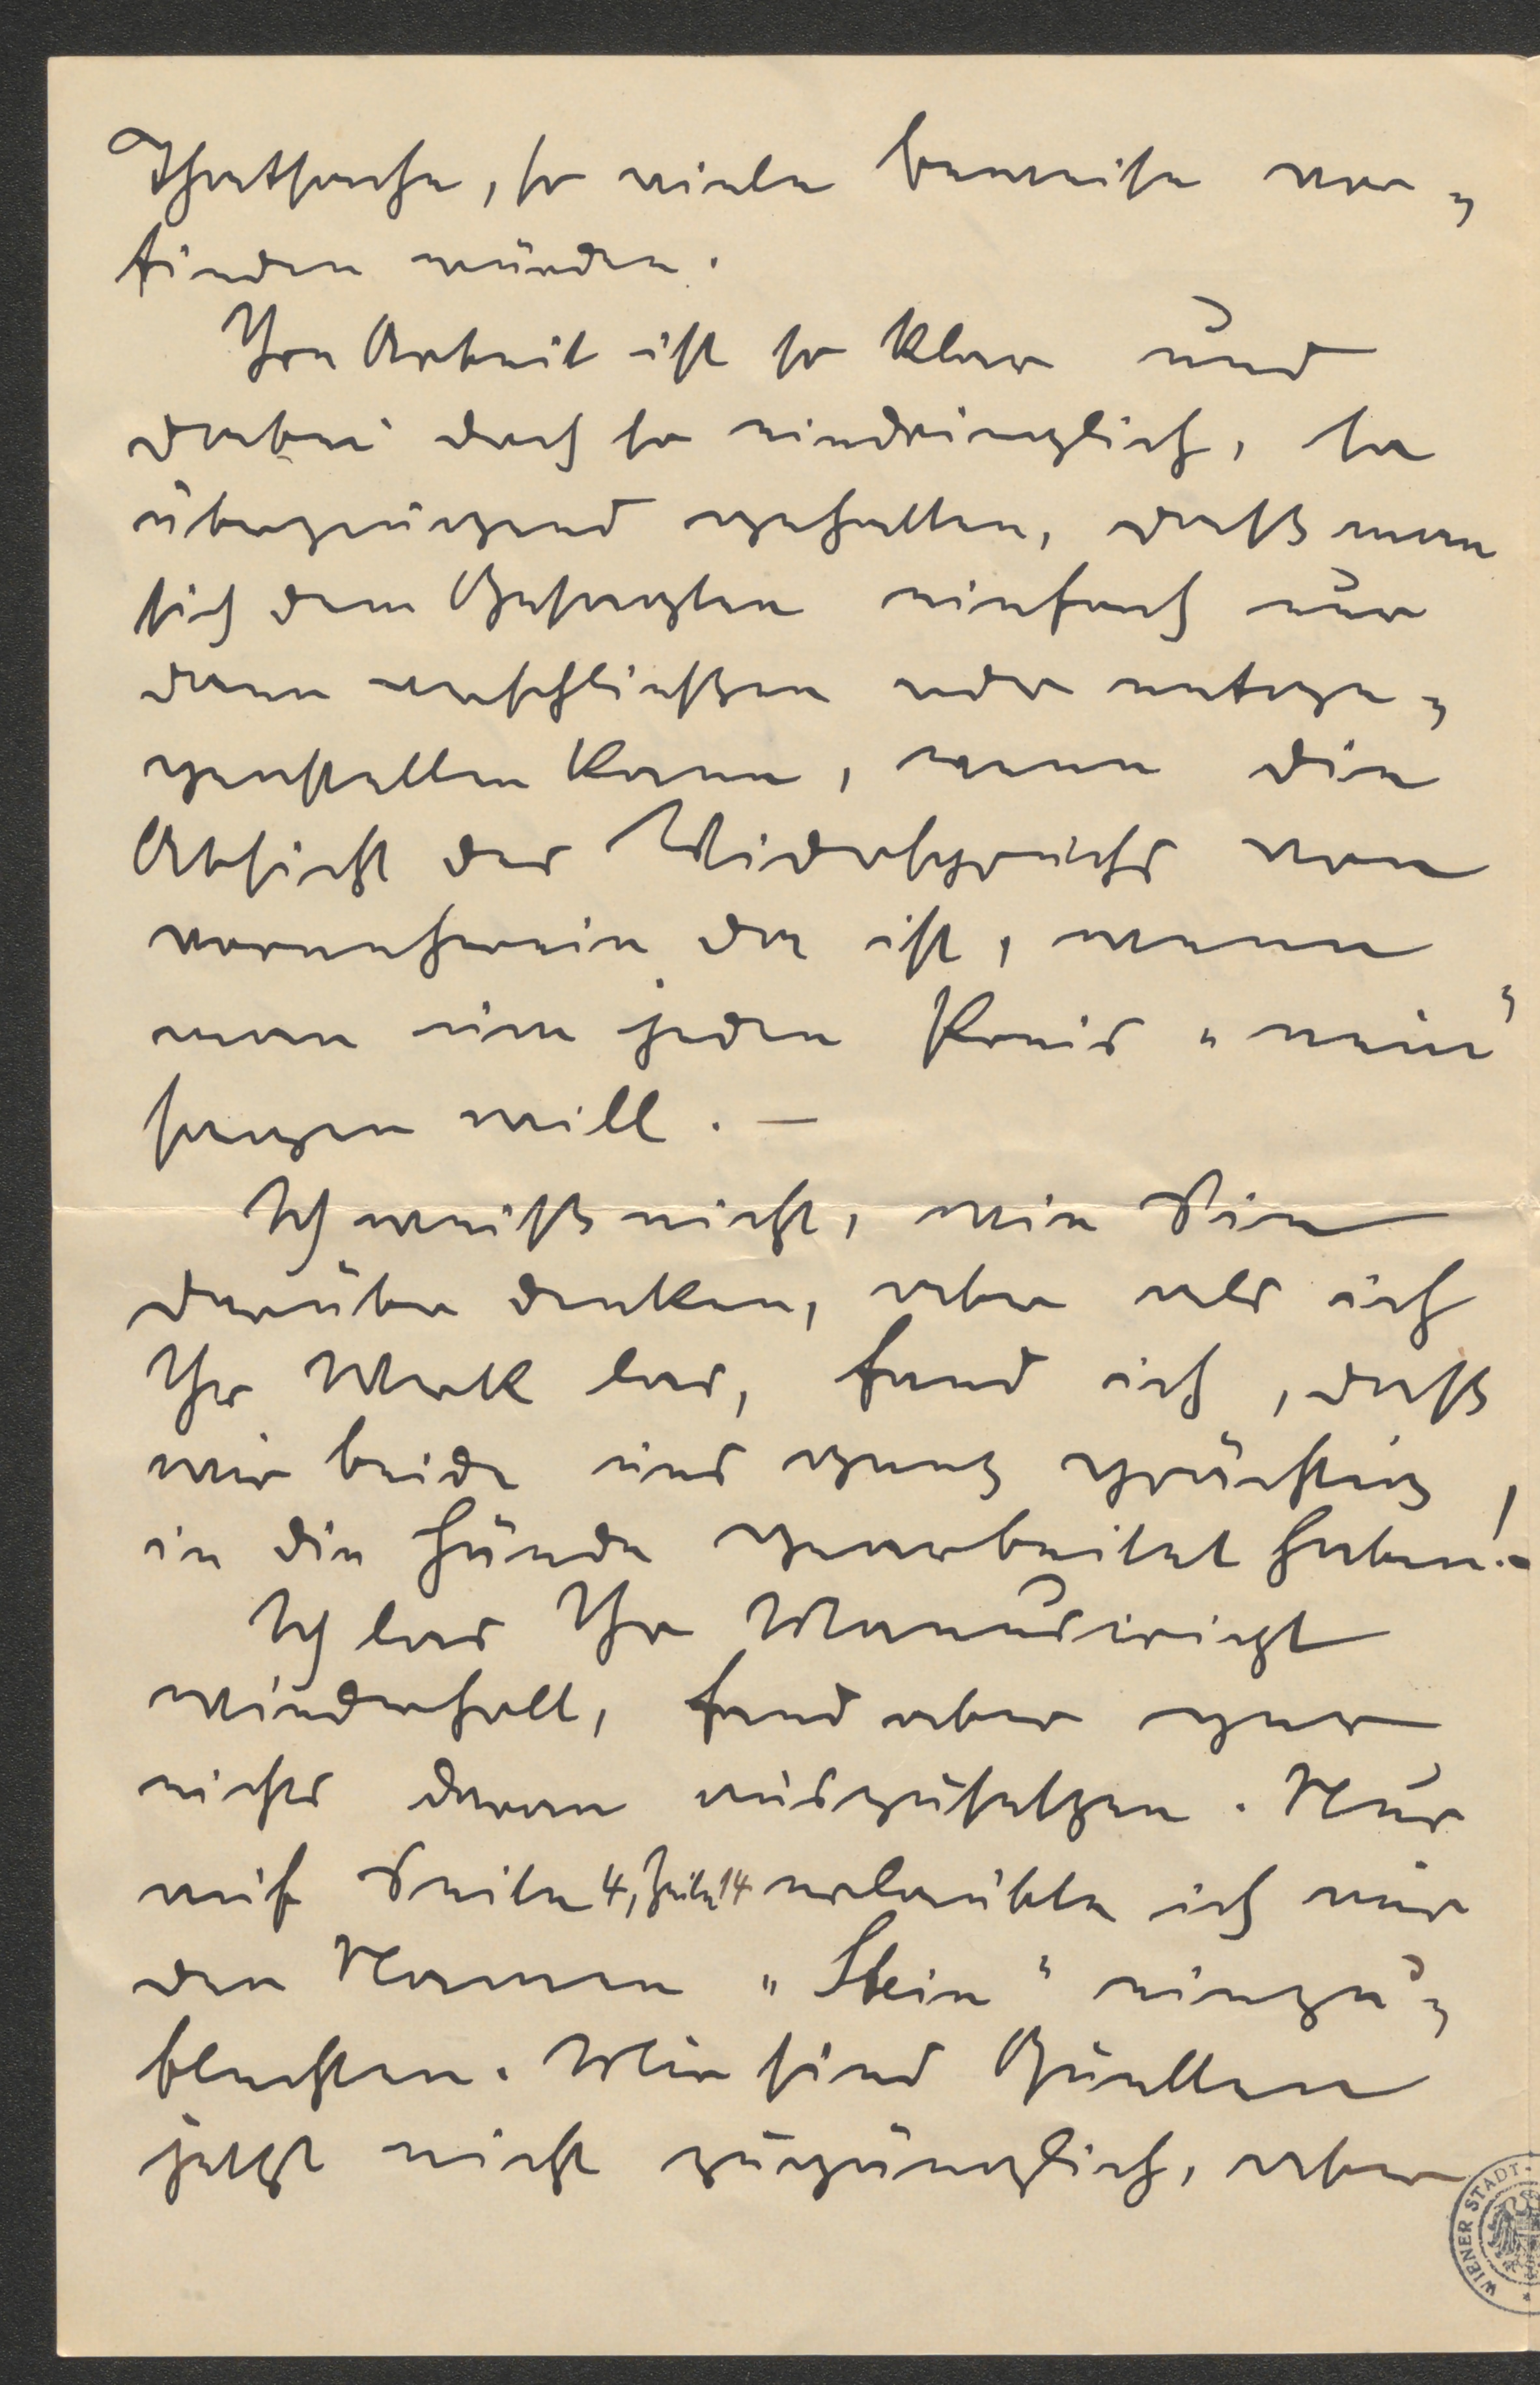 Thatsache, so viele beweise vor„
finden würden.
Ihre Arbeit ist so klar und
dabei doch so eindringlich, so
überzeugend gehalten, daß man
sich dem Gesagten einfach nur
dann verschließen oder entge„
genstellen kann, wenn die
Absicht des Widerspruchs von
vorneherein da ist, wenn
man um jeden Preis „nein“
sagen will. —
Ich weiß nicht, wie Sie
darüber denken, aber als ich
Ihr Werk las, fand ich, daß
wir beide uns ganz prächtig
in die Hände gearbeitet haben!–
Ich las Ihr Manuscript
wiederholt, fand aber gar
nichts daran auszusetzen. Nur
auf Seite 4, Zeile 14 erlaubte ich mir
den Namen „Stein“ einzu„
flechten. Mir sind Quellen
jetzt nicht zugänglich, aber
WIENER STADT-